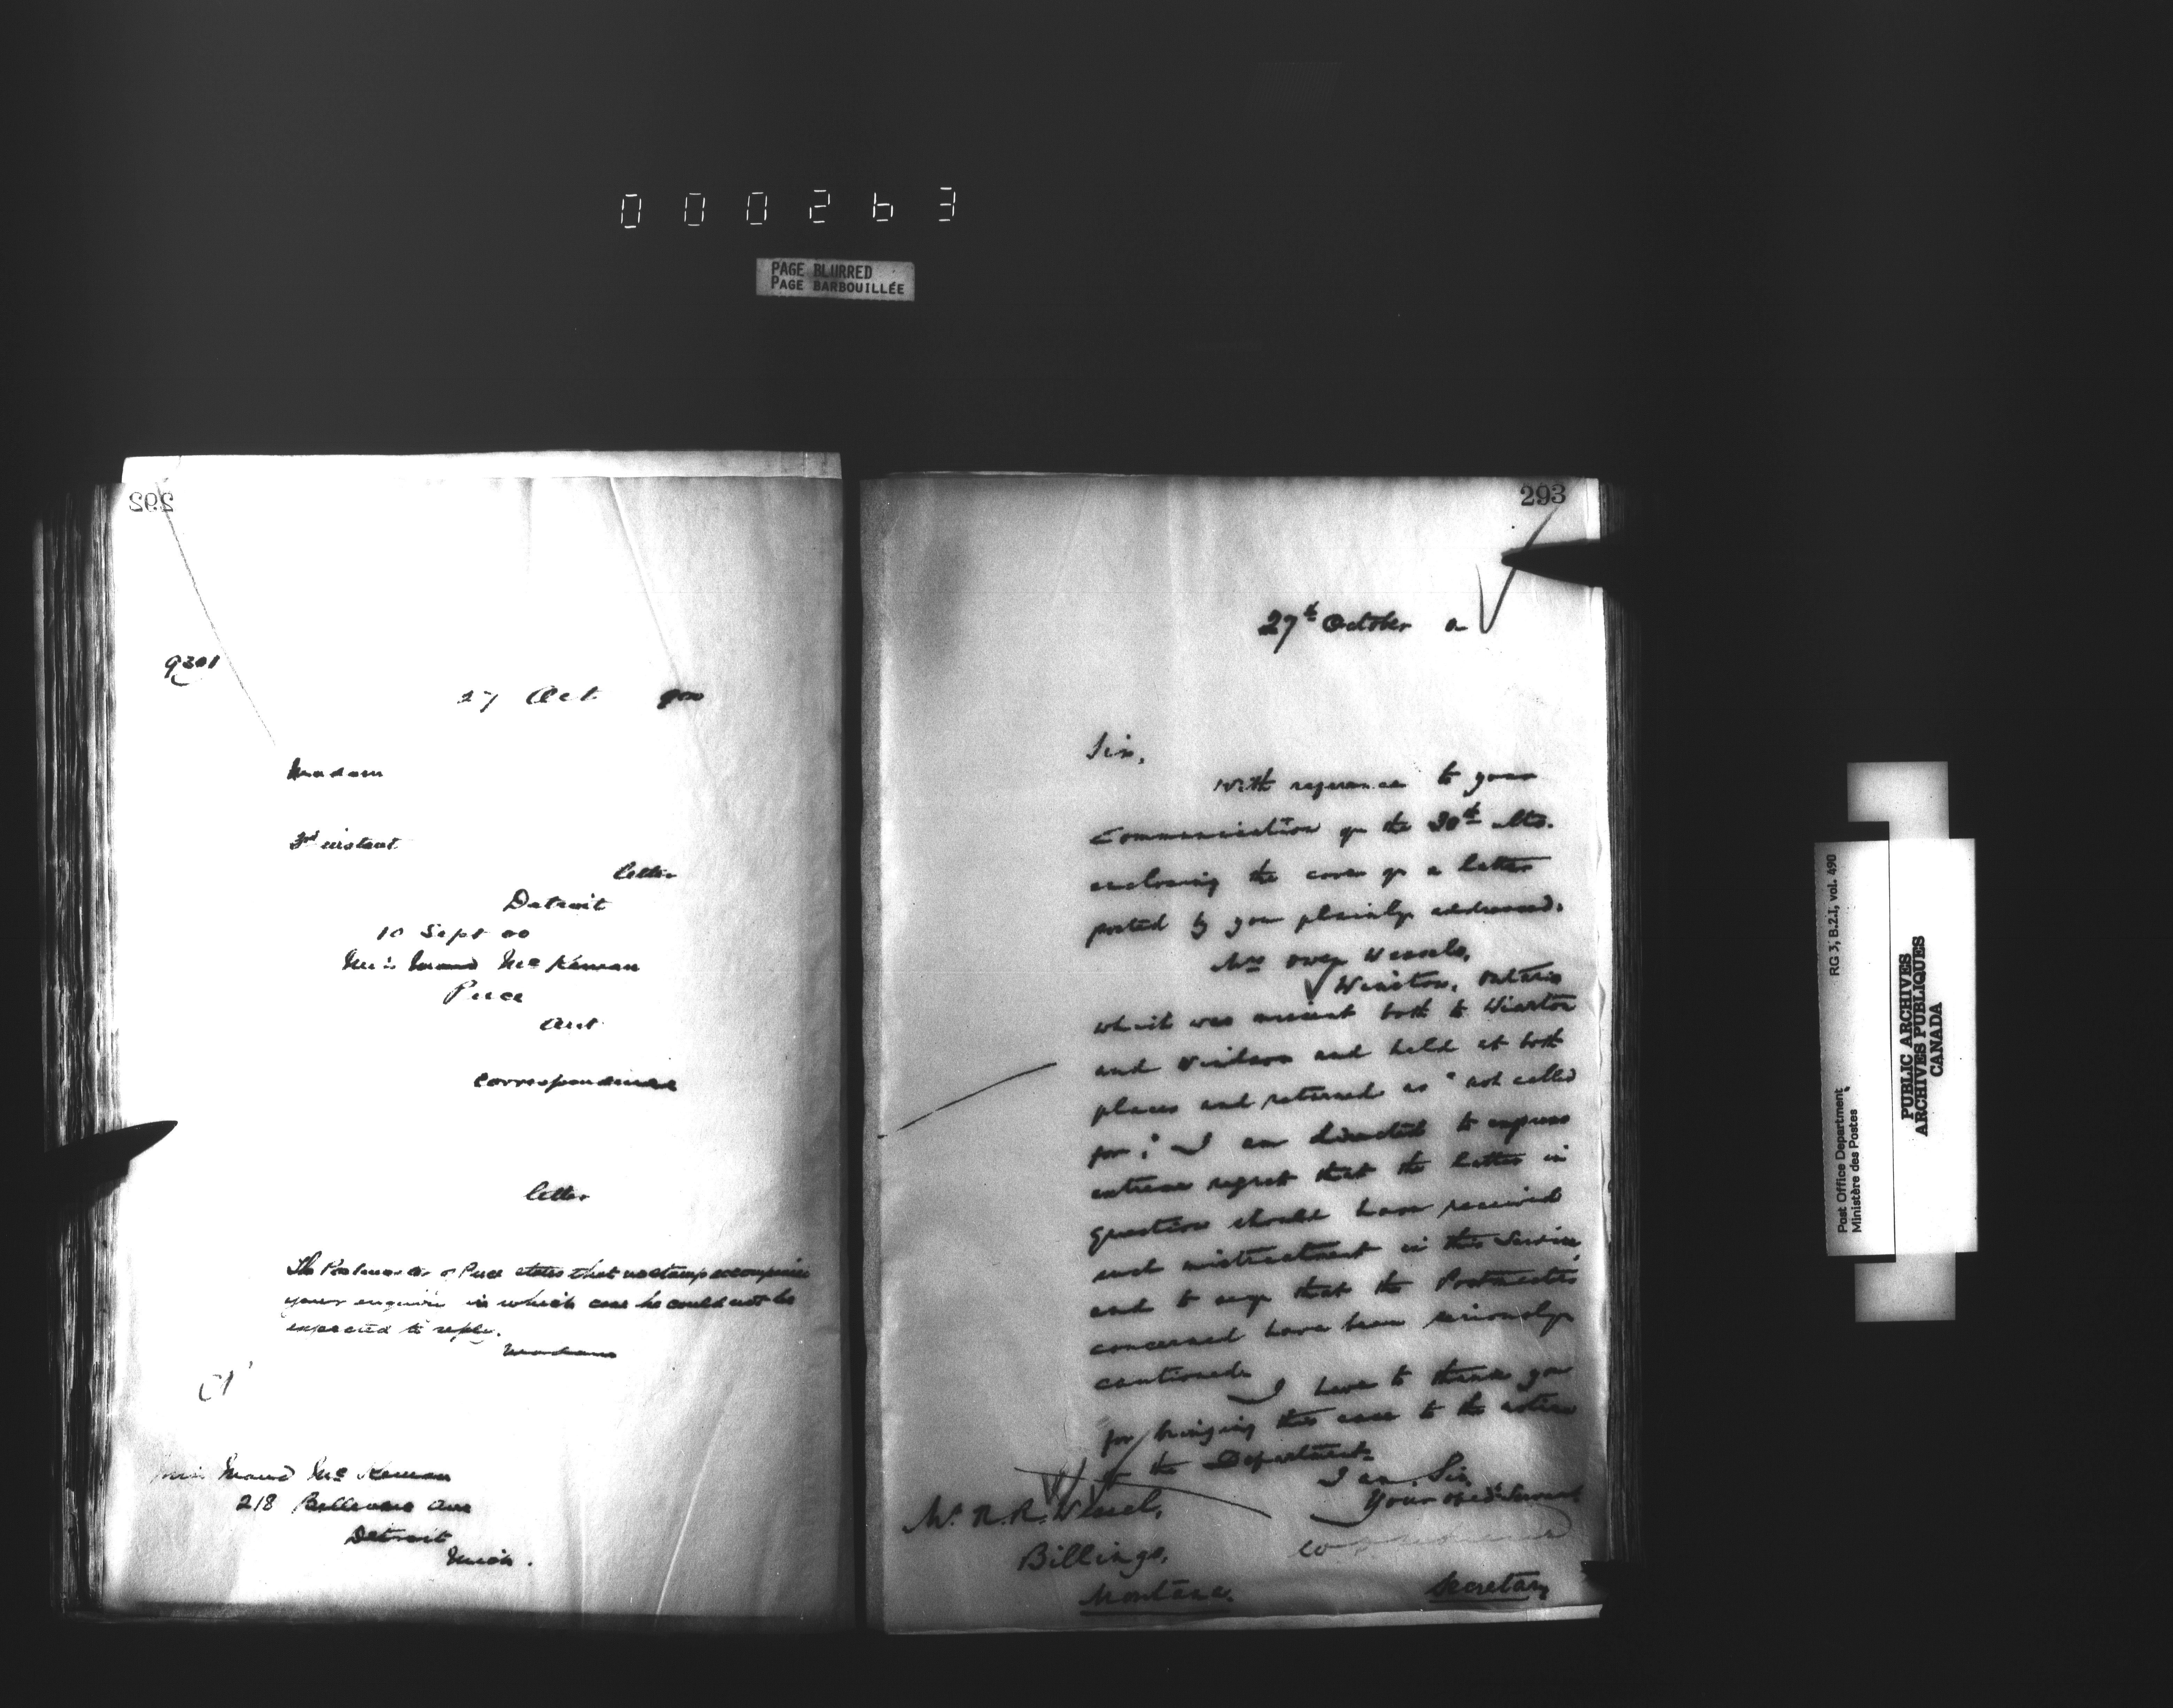 000263
PAGE BLURRED
PAGE BARBOUILLÉE
292
9301
27 Oct 900
Madam
3rd instant
letter
Detroit
10 Sept 00
Miss Maud McKernan
Puce
Ont
correspondence
letter
The Postmaster of Puce states that no stamp accompanied
your enquiry in which case he could not be
expected to reply.
Madam
Miss Maud McKernan
218 Bellevue Ave
Detroit
Mich.
293
27th October
Sir,
With reference to your
communication of the 30th ulto.
enclosing the cover of a letter
posted by you plainly addressed,
Mrs Owen Wessels,
Wiarton, Ontario
which was missent both to
and and held at both
places and returned as "not called
for," I am directed to express
extreme regret that the letter in
question should have received
such mistreatment in this Service,
and to say that the Postmasters
concerned have been seriously
cautioned.
I have to thank you
for bringing this case to the notice
of the Department.
I am, Sir,
Your obed. Servant,
Secretary
Mr. R. R. Wessel,
Billings,
Montana.
RG 3, B.2.I, vol. 490
Post Office Department
Ministère des Postes
PUBLIC ARCHIVES
ARCHIVES PUBLIQUES
CANADA